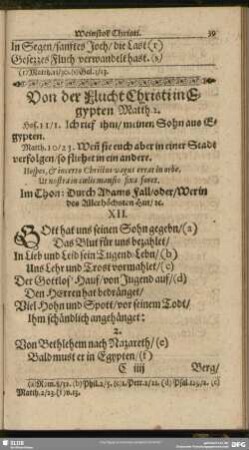 Weinstok Christi. 39
In Segen/sanftes Joch/die Last (r)
Gesezzes Fluch verwandelt hast. (s)
(r) Matth. 11/30. (s) Gal. 3/13.
Von der Flucht Christi in E-
gypten Matth. 2.
Hos. 11/1. Ich rief ihm/meinen Sohn aus E-
gypten.
Matth. 10/23. Weñ sie euch aber in einer Stadt
verfolgen/so fliehet in ein andere.
Hospes, & incerto Christus vagus errat in orbe,
Ut nostra in cœlis mansio fixa foret.
Im Thon: Durch Adams Fall/oder/Wer in
des Allerhöchsten Hut/ꝛc.
XII.
Gott hat uns seinen Sohn gegebn/(a)
Das Blut für uns bezahlet/
In Lieb und Leid sein Tugend-Lebn/(b)
Uns Lehr und Trost vormahlet/(c)
Der Gottlos' Hauf/von Jugend auf/(d)
Den Herren hat bedränget/
Viel Hohn und Spott/vor seinem Todt/
Ihm schändlich angehänget:
2.
Von Bethlehem nach Nazareth/(e)
Bald must er in Egypten/(f)
C iiij Berg/
(a) Rom. 8/32. (b) Phil. 2/5. (c) 1. Petr. 2/21. (d) Psal. 129/1. (e)
Matth. 2/23. (f) v. 13.
SLUB